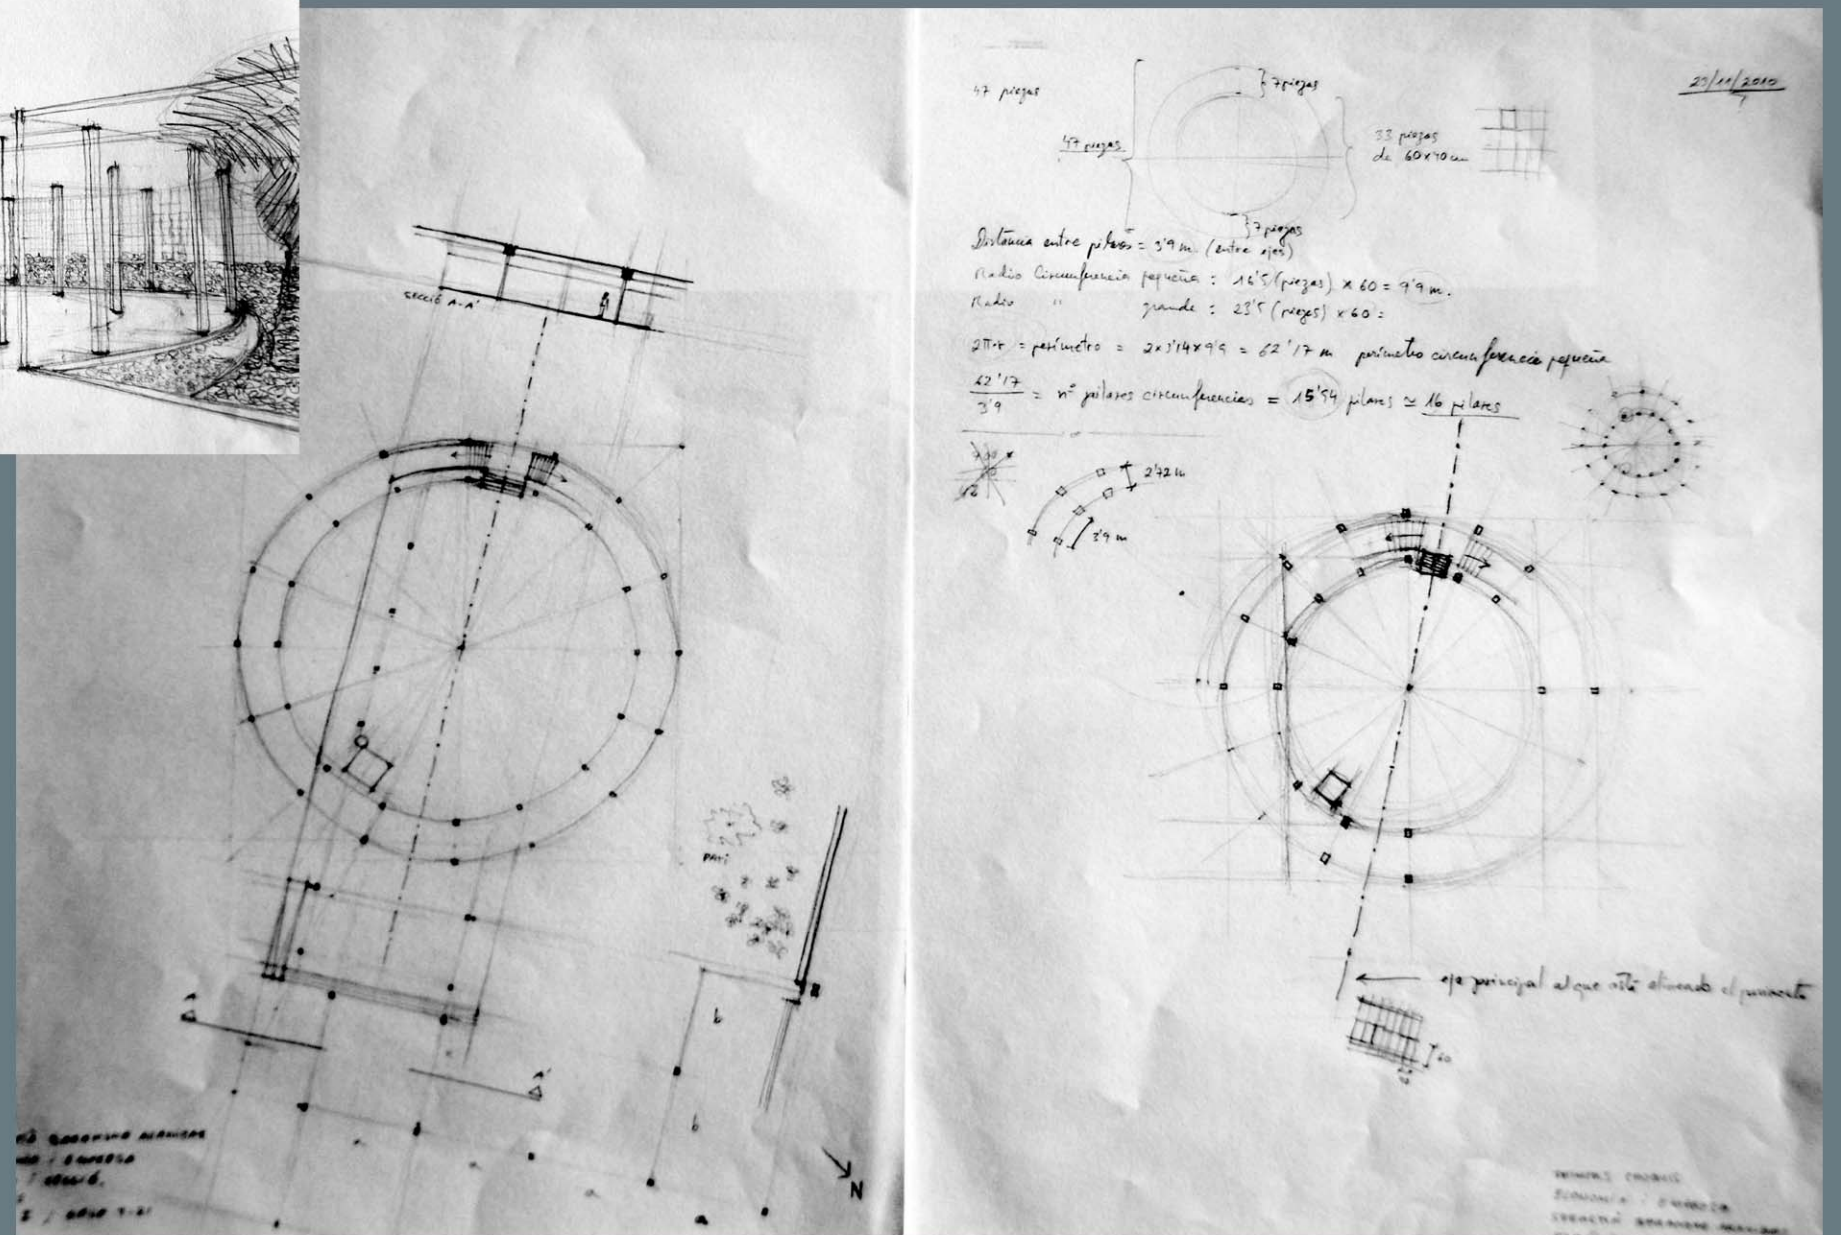 SECCIÓ A-A'
PATI
A
A'
b
b
a
a
N
23/11/2010
47 piezas
7 piezas
47 piezas
33 piezas
de 60x40cm
7 piezas
Distancia entre pilares = 3'9 m. (entre ejes)
Radio Circunferencia pequeña : 16'5 (piezas) x 60 = 9'9 m.
Radio " grande : 23'5 (piezas) x 60 =
2π·r = perímetro = 2x3'14x9'9 = 62'17 m perímetro circunferencia pequeña
62'17
3'9
= nº pilares circunferencias = 15'94 pilares ≃ 16 pilares
2'72 m
3'9 m
eje principal al que está alineado el pavimento
60
40
ECONOMIA I EMPRESA